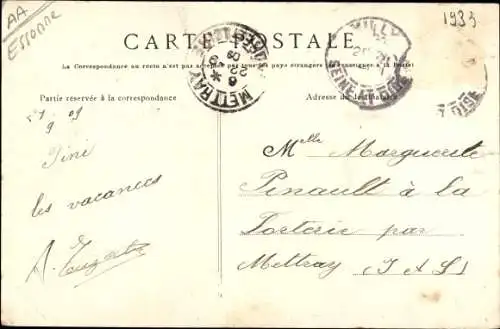 AA
ESSONNE
1933
CARTE POSTALE
(La Correspondance au recto n'est pas acceptée par tous pays étrangers (Se renseigner à la Poste)
Partie réservée à la correspondance
Adresse du destinataire
METTRAY
9 09
Fini
les vacances
Melle Marguerite
Pinault à la
par
Mettray (I & L)